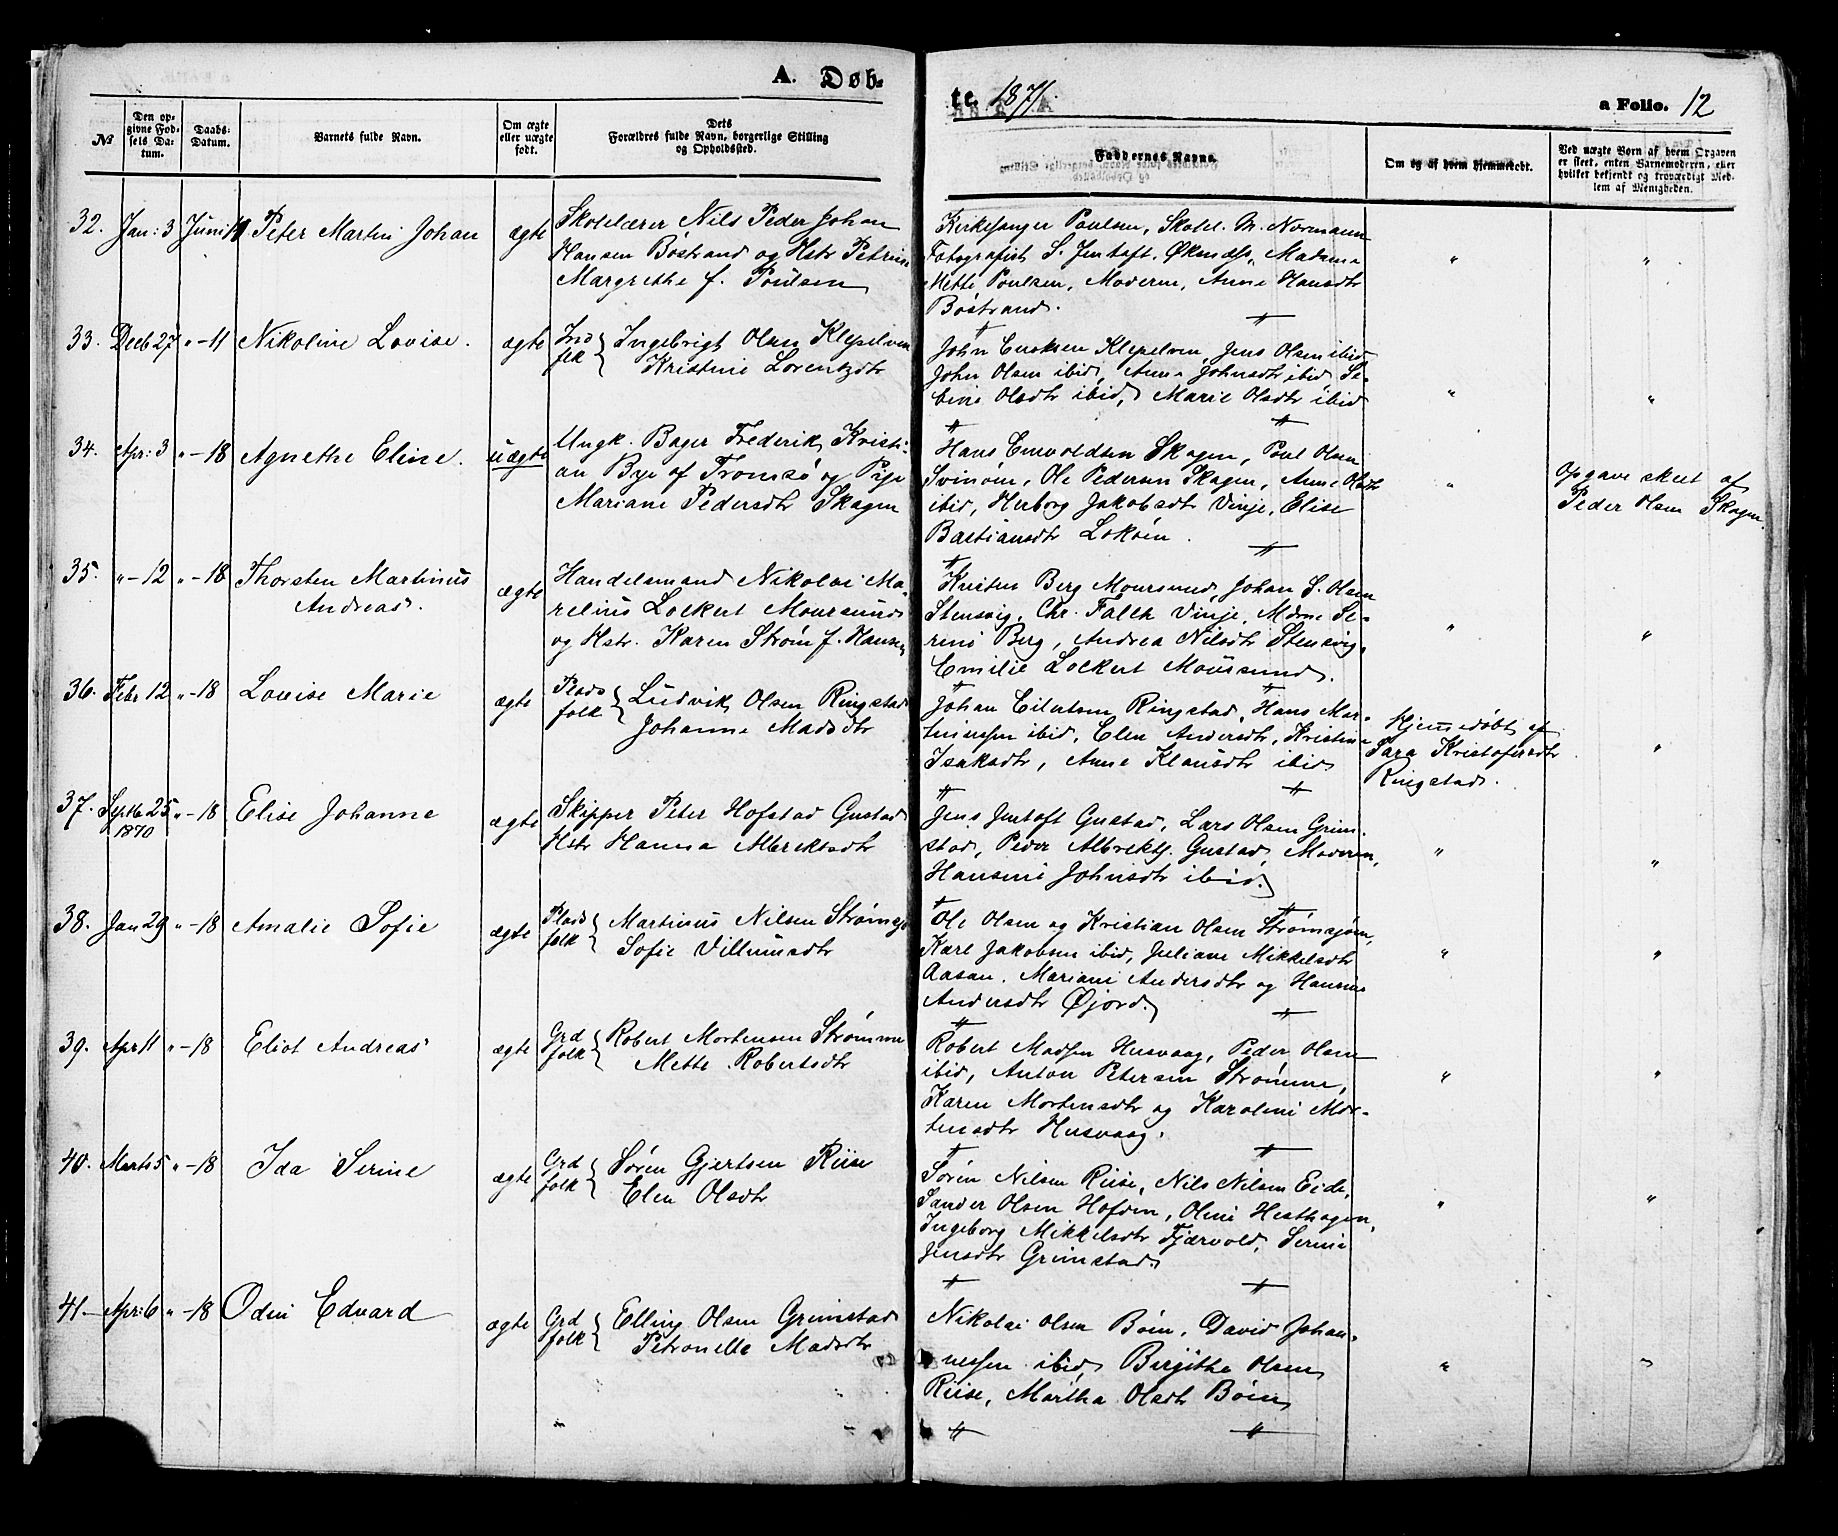 A. Døb-
te. 1871.
a Folio. 12
No
Den op-
givne Fød-
sels Da-
tum.
Daabs-
Datum.
Barnets fulde Navn.
Om ægte
eller uægte
født.
Dets
Forældres fulde Navn, borgerlige Stilling
og Opholdssted.
Faddernes Navne.
Om og af hvem hjemmedøbt.
Ved uægte Børn af hvem Opgaven
er skeet, enten Barnemoderen, eller
hvilket bekjendt og troværdigt Med-
lem af Menigheden.
32. Jan: 3 Juni 11. Peter Martin Johan ægte
Skolelærer Nils Peder Johan
Hansen Bøstrand og Hstr Petrine
Margrethe f. Poulsen
Kirkesanger Poulsen, Skolel. M. Normann
Fotografist S. Jentoft, Øksnæs, Madame
Mette Poulsen, Moderen, Anne Hansdtr
Bøstrand.
" "
33. Decb 27 " - 11 Nikoline Lovise. ægte
Ingebrigt Olsen Klepelven
Kristine Lorentzdtr
John Klepelven, Jens Olsen ibid
John Olsen ibid, Anne Johnsdtr ibid Se-
rine Olsdtr ibid, Marie Olsdtr ibid
" "
34. Apr: 3 " - 18 Agnethe Eline. uægte
Ungk. Bager Frederik Kristi-
an Bye af Tromsø og Pige
Mariane Pedersdtr Skagen
Hans Enevoldsen Skagen, Poul Olsen
Svinøen, Ole Pedersen Skagen, Anne Olsdtr
ibid, Herborg Jakobsdtr Vinje, Elise
Bastiansdtr Lokøen.
"
Opgave skeet af
Peder Olsen Skagen.
35. " - 12 " - 18 Thorsten Martinus
Andreas. ægte
Handelsmand Nikolai Ma-
relius Lockert Moursund
og Hstr. Karen Strøm f. Hansen
Berg Moursund, Johan S. Olsen
Stensvig, Chr. Falck Vinje, Mdme Se-
rine Berg, Andrea Nilsdtr Stensvig,
Emilie Lockert Moursund.
" "
36. Febr 12 " - 18 Lovise Marie ægte
Plads
folk { Ludvik Olsen Ringstad
Johanne Madsdtr
Johan Ringstad, Hans Mar-
tinussen ibid, Elen Andersdtr, Kristine
Isaksdtr, Anne Klausdtr ibid
Hjemmedøbt af
Sara Kristofersdtr
Ringstad.
"
37. Septb 25
1870 " - 18 Elise Johanne ægte
Skipper Peter Hofstad Gustad
Hstr Hanna Albrektsdtr
Jens Jentoft Gustad, Lars Olsen Grim-
stad, Peder Albrekts. Gustad, Moderen,
Hansine Johnsdtr ibid.
" "
38. Jan 29 " - 18 Amalie Sofie ægte
Plads
folk { Martinus Nilsen Strømsjo
Sofie Villumsdtr
Ole Olsen og Kristian Olsen Strømsjøen,
Karl Jakobsen ibid, Juliane Mikkelsdtr
Aasan, Mariane Andersdtr og Hansine
Andersdtr Øjord.
" "
39. Apr 11 " - 18 Eliot Andreas ægte
Grd
folk { Robert Mortensen Strømme
Mette Robertsdtr
Robert Madsen Husvaag, Peder Olsen
ibid, Anton Petersen Strømme,
Karen Mortensdtr og Karoline Mor-
tensdtr Husvaag.
" "
40. Marts 5 " - 18 Ida Serine ægte
Grd
folk { Søren Gjertsen Riise
Elen Olsdtr
Søren Nilsen Riise, Nils Nilsen Eide,
Sander Olsen Hofden, Oline Hesthagen,
Ingeborg Mikkelsdtr Fjærvold, Serine
Jensdtr Grimstad.
" "
41 - Apr: 6 " - 18 Odin Edvard ægte
Grd
folk { Elling Olsen Grimstad
Petronelle Madsdtr
Nikolai Olsen Bøen, David Johan-
nessen ibid, Birgitha Olsen
Riise, Martha Olsdtr Bøen
" "